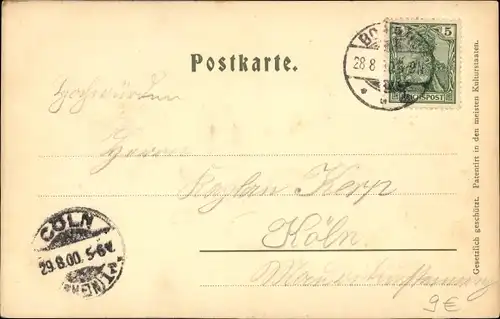 Postkarte.
5
BO
28 8
REICHSPOST
Hochwürden
Herrn
Kaplan Kerp
Köln.
CÖLN
29.8.00. 5-6
(RHEIN)
9€
Gesetzlich geschützt. Patentirt in den meisten Kulturstaaten.